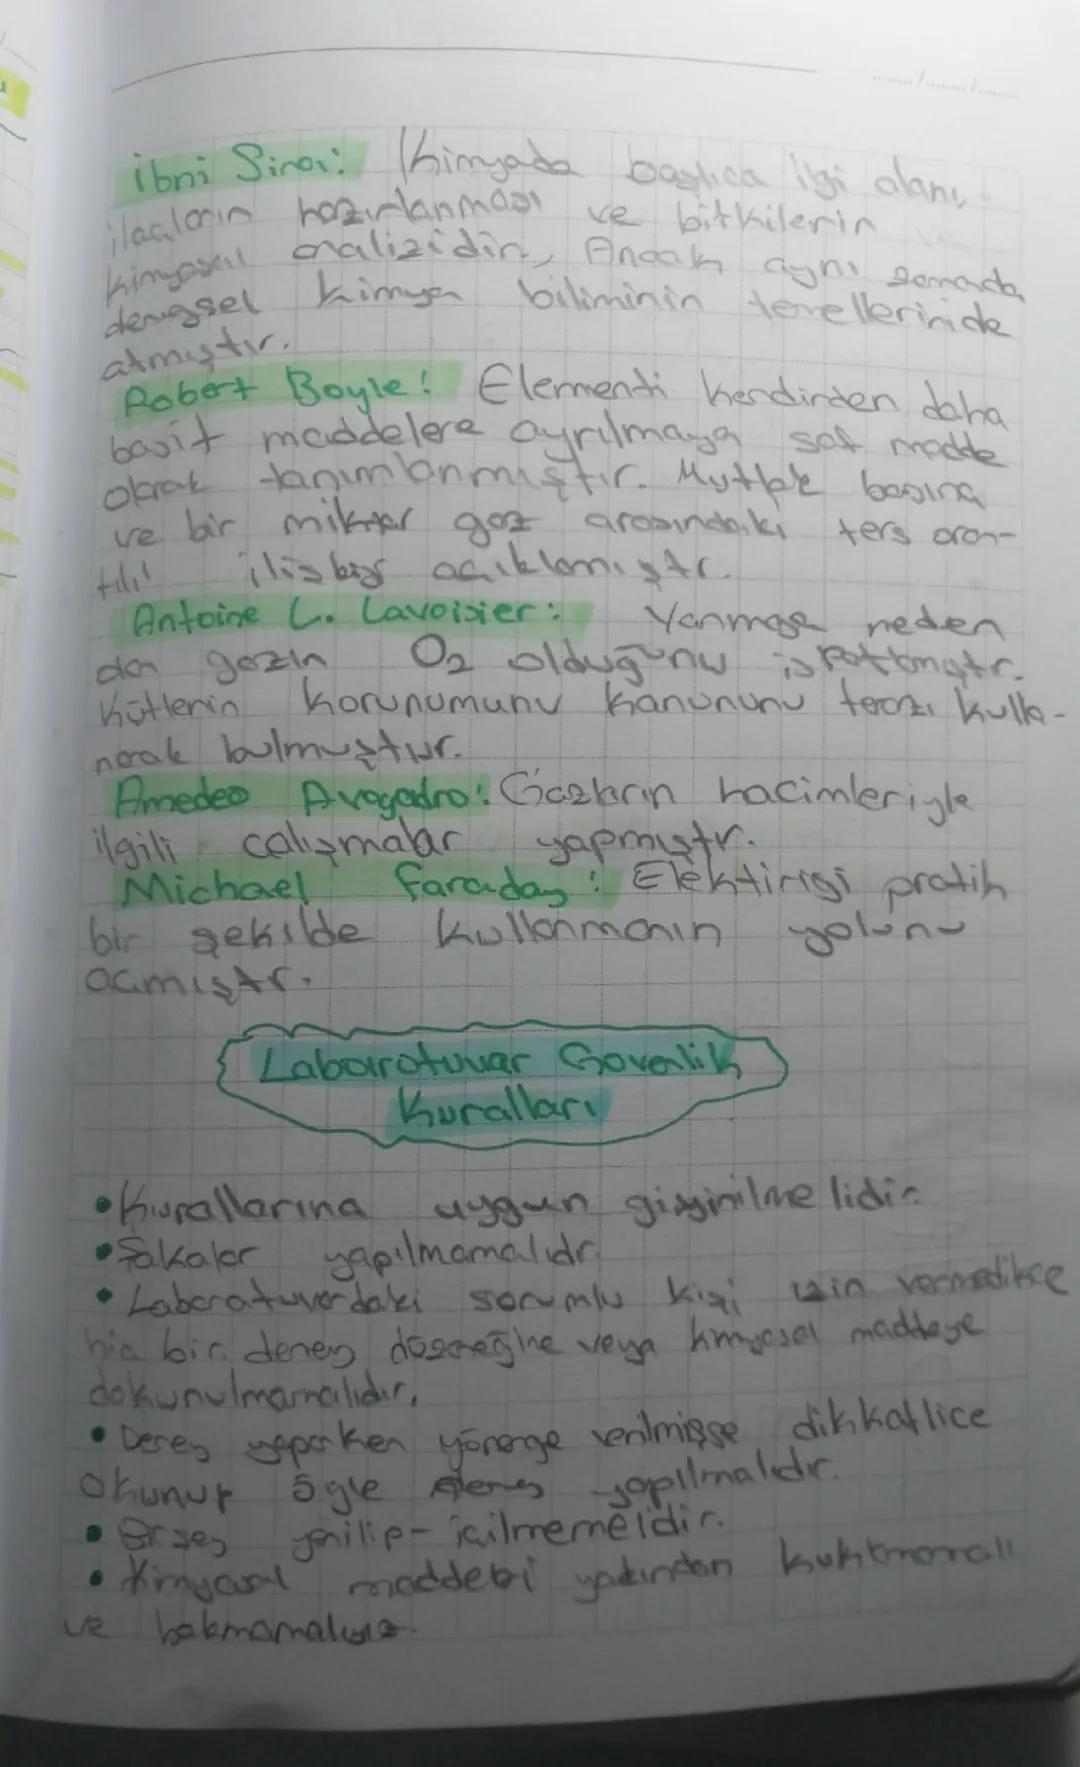 İbni Sina: Kimyada başlıca ilgi alanı,
ilaçların hazırlanması ve bitkilerin
kimyasal analizidir, Ancak aynı zamanda
deneysel kimya biliminin temellerinide
atmıştır.
Robert Boyle: Elementi kendinden daha
basit maddelere ayrılmaya saf madde
olarak tanımlanmıştır. Mutlak basınç
ve bir miktar gaz arasındaki ters oran-
tılı açıklamıştr.
Antoine L. Lavoisier: Yanmaya neden
olan gazın O2 olduğunu ispatlamıştr.
Kütlenin Korunumunu Kanununu terazi kulla-
narak bulmuştur.
Amedeo Avogadro: Gazların hacimleriyle
ilgili çalışmalar yapmıştr.
Michael Faraday: Elektiriği pratik
bir şekilde kullanmanın yolunu
açmıştr.
Laboratuvar Güvenlik
Kuralları
• Kurallarına uygun giyinilmelidir.
• Şakalar yapılmamalıdr.
• Laboratuvardaki sorumlu kişi izin vermedikçe
hiç bir deney düzeneğine veya kimyasal maddeye
dokunulmamalıdır.
• Deney yaparken yönerge verilmişse dikkatlice
Okunup öyle deney yapılmalıdr.
• Bir şey yenilip-içilmemelidir.
• Kimyasal maddeleri yakından
ve bakmamalıyız.